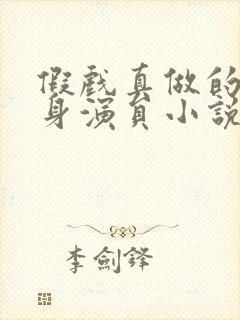 假戲真做的
身演員小說
李劍鋒